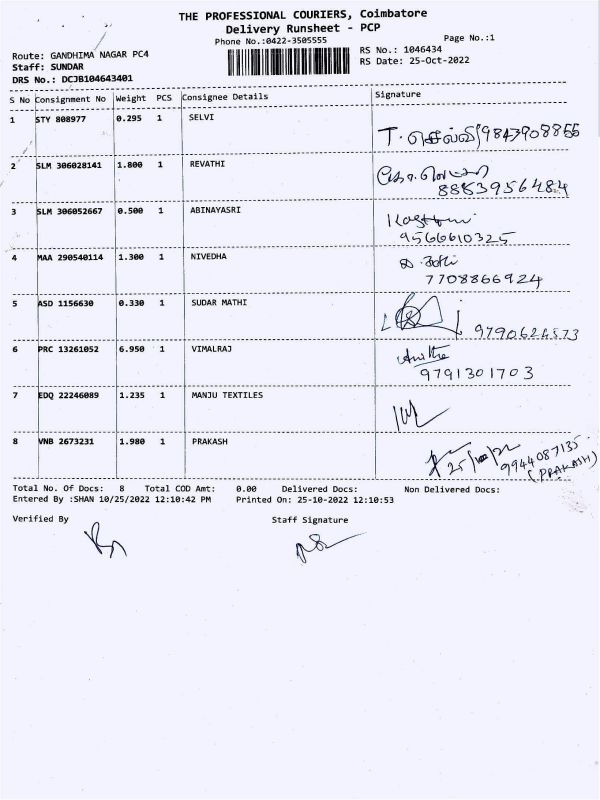 THE PROFESSIONAL COURIERS, Coimbatore
Delivery Runsheet - PCP
Phone No.:0422-3505555
Page No.:1
Route: GANDHIMA NAGAR PC4
RS No.: 1046434
Staff: SUNDAR
RS Date: 25-Oct-2022
DRS No.: DCJB104643401
S No Consignment No Weight PCS Consignee Details Signature
1 STY 808977 0.295 1 SELVI
T. செல்வி 9843908855
2 SLM 306028141 1.800 1 REVATHI
8883956484
3 SLM 306052667 0.500 1 ABINAYASRI
9566610325
4 MAA 290540114 1.300 1 NIVEDHA
7708866924
5 ASD 1156630 0.330 1 SUDAR MATHI
9790624573
6 PRC 13261052 6.950 1 VIMALRAJ
9791301703
7 EDQ 22246089 1.235 1 MANJU TEXTILES
8 VNB 2673231 1.980 1 PRAKASH
9944087135
(PRAKASH)
Total No. Of Docs: 8 Total COD Amt: 0.00 Delivered Docs: Non Delivered Docs:
Entered By :SHAN 10/25/2022 12:10:42 PM Printed On: 25-10-2022 12:10:53
Verified By Staff Signature